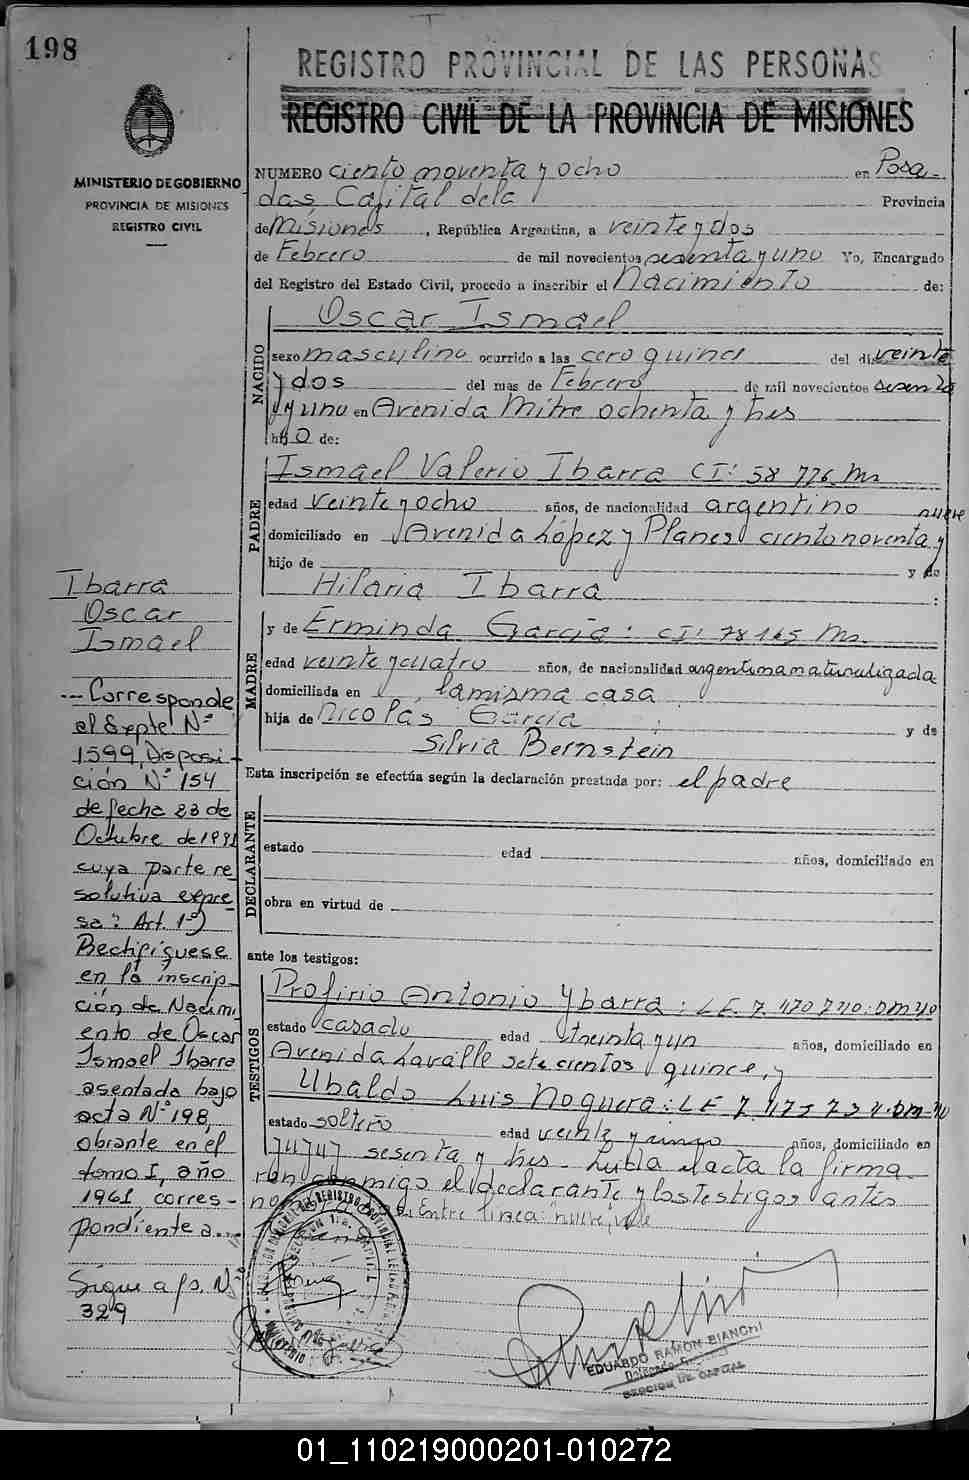 198
REGISTRO PROVINCIAL DE LAS PERSONAS
REGISTRO CIVIL DE LA PROVINCIA DE MISIONES
MINISTERIO DE GOBIERNO
PROVINCIA DE MISIONES
REGISTRO CIVIL
NUMERO ciento noventa y ocho en Posa-
das Capital de la Provincia
de Misiones, República Argentina, a veinte y dos
de Febrero de mil novecientos sesenta y uno Yo, Encargado
del Registro del Estado Civil, procedo a inscribir el Nacimiento de:
NACIDO
Oscar Ismael
sexo masculino ocurrido a las cero quince del dia veinte
y dos del mes de Febrero de mil novecientos sesenta
y uno en Avenida Mitre ochenta y tres
hijo de:
PADRE
Ismael Valerio Ibarra CI: 58 776 Mns
edad veinte y ocho años, de nacionalidad argentino nueve
domiciliado en Avenida López y Planes ciento noventa y
hijo de y de
Hilaria Ibarra :
MADRE
y de Erminda Garcia: CI: 78165 Mns.
edad veinte y cuatro años, de nacionalidad argentina naturalizada
domiciliada en la misma casa
hija de Nicolás Garcia y de
Silvia Bernstein
Esta inscripción se efectúa según la declaración prestada por: el padre
DECLARANTE
estado edad años, domiciliado en
obra en virtud de
ante los testigos:
TESTIGOS
Profirio Antonio Ybarra: LE. 7.470.740: DM 40
estado casado edad treinta y un años, domiciliado en
Avenida Lavalle sete cientos quince, y
Ubaldo Luis Noguera: LE 7.473.734. DM 40
estado soltero edad veinte y cinco años, domiciliado en
Jujuy sesenta y tres - Leida el acta la firma
ron conmigo el declarante y los testigos antes
Entre linea: "nueve", vale
Ibarra
Oscar
Ismael
--- Corresponde
al Expte Nº
1599, Disposi-
ción Nº 154
de fecha 23 de
Octubre de 1991
cuya parte re
solutiva expre
sa: Art. 1º)
Rectifiquese
en la inscrip-
ción de Nacimi
ento de Oscar
Ismael Ibarra
asentada bajo
acta Nº 198,
obrante en el
tomo I, año
1961, corres-
pondiente a...
Sigue a fs. Nº
329
EDUARDO RAMON BIANCHI
SECCION DE CAPITAL
01_110219000201-010272